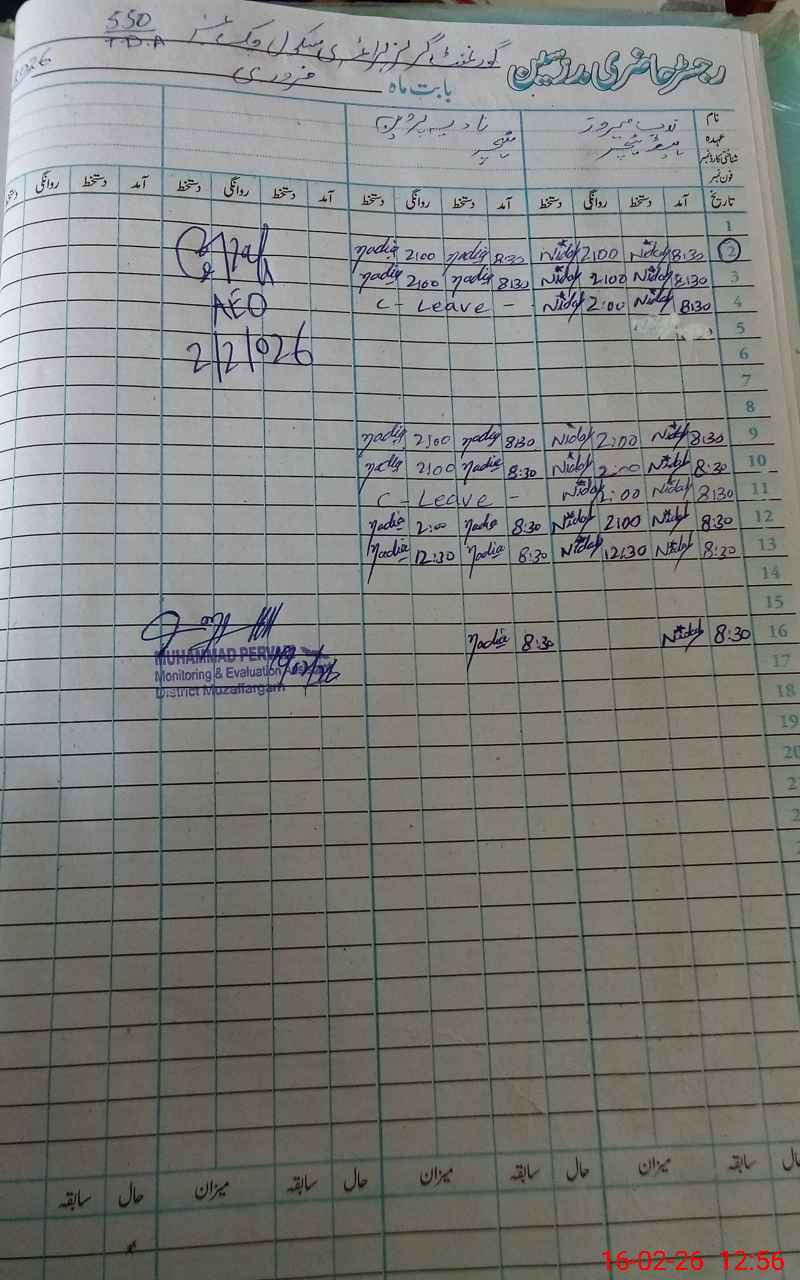 550
T.D.A
گورنمنٹ گرلز پرائمری سکول چک نمبر
رجسٹر حاضری مدرسین
2026
فروری
بابت ماہ
نام
عہدہ
شناختی کارڈ نمبر
فون نمبر
نادیہ پروین
ٹیچر
ہیڈ ٹیچر
تاریخ آمد دستخط روانگی دستخط آمد دستخط روانگی دستخط آمد دستخط روانگی دستخط آمد دستخط روانگی دستخط
1
Nadia 2:00 Nadia 8:30 Nidaf 2:00 Nidaf 8:30 2
Nadia 2:00 Nadia 8:30 Nidaf 2:00 Nidaf 8:30 3
C - Leave - Nidaf 2:00 Nidaf 8:30 4
AEO
5
2/2/026
6
7
8
Nadia 2:00 Nadia 8:30 Nidaf 2:00 Nidaf 8:30 9
Nadia 2:00 Nadia 8:30 Nidaf 2:00 Nidaf 8:30 10
C - Leave - Nidaf 2:00 Nidaf 8:30 11
Nadia 2:00 Nadia 8:30 Nidaf 2:00 Nidaf 8:30 12
Nadia 12:30 Nadia 8:30 Nidaf 12:30 Nidaf 8:30 13
14
15
Nadia 8:30 Nidaf 8:30 16
MUHAMMAD
Monitoring & Evaluation
District Muzaffargarh
17
18
19
20
سابقہ میزان حال سابقہ میزان حال سابقہ میزان حال سابقہ
16-02-26 12:56